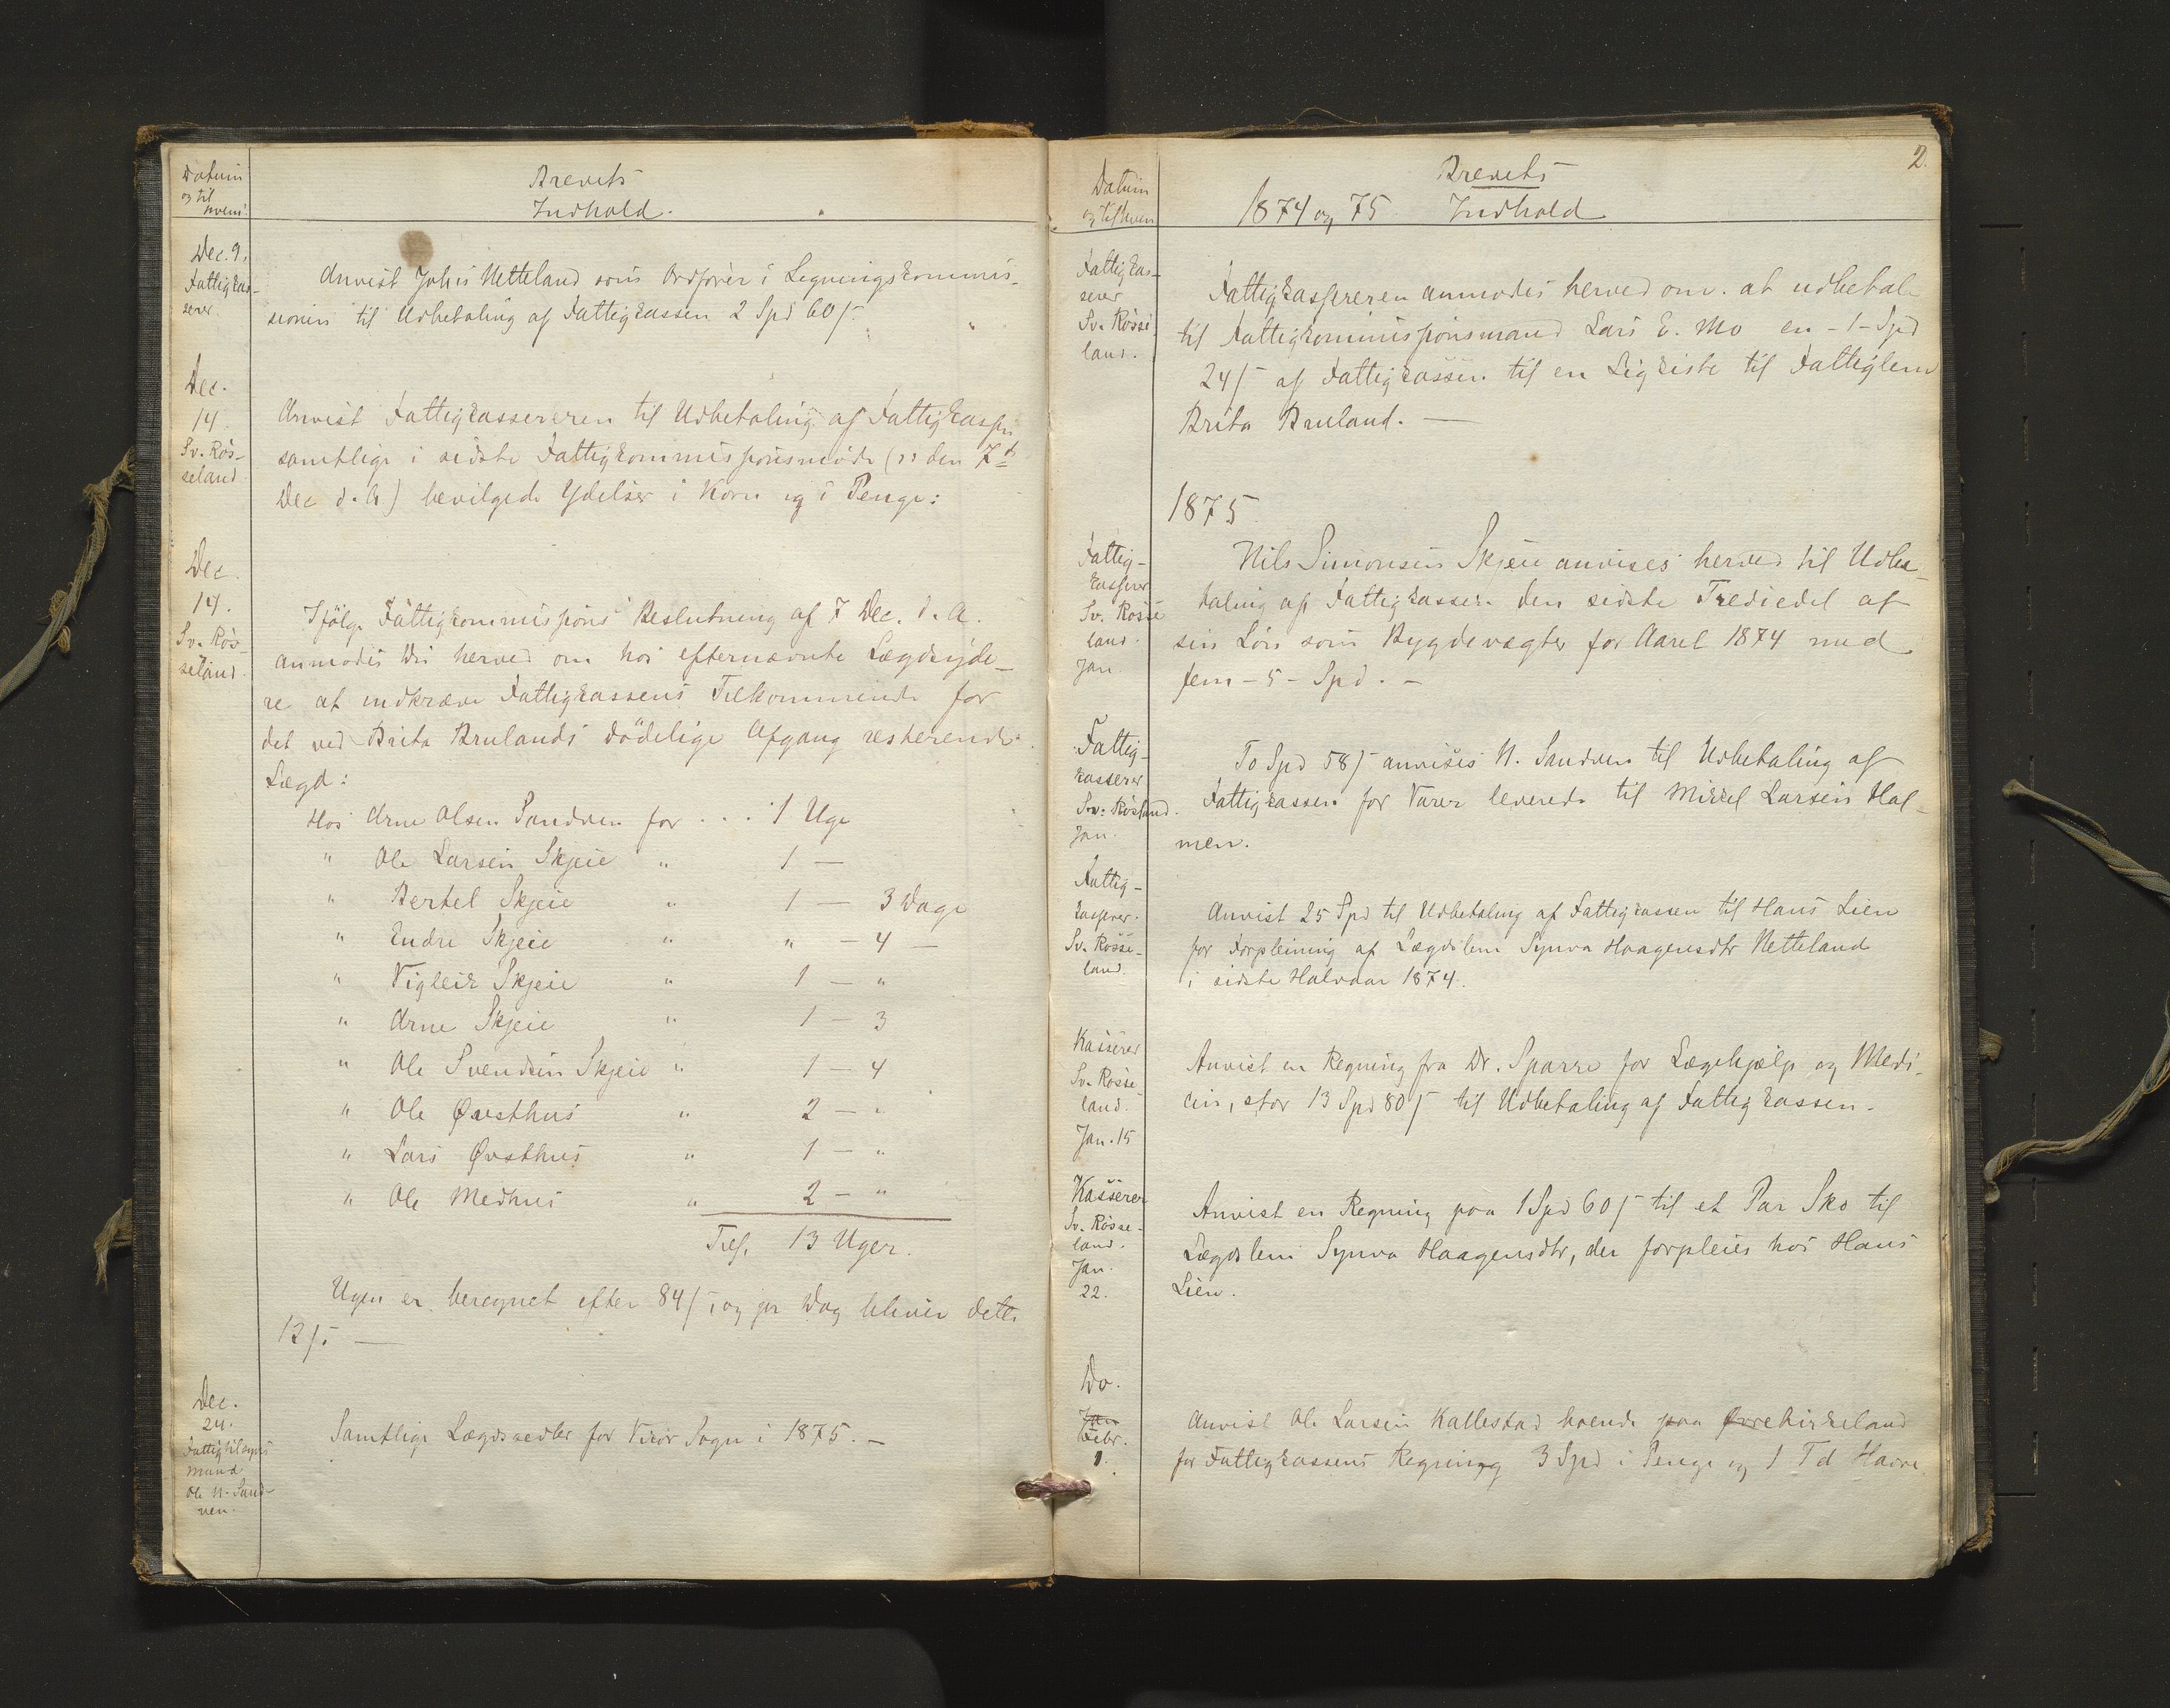 Datum
og til
hvem.
Brevets
Indhold.
Dec. 9.
Fattigkas-
serer.
Anvist Johs Netteland som Ordfører i Ligningskommis-
sionen til Udbetaling af Fattigkassen 2 Spd 60 ſ
Dec.
14.
Sv. Røs-
seland
Anvist Fattigkassereren til Udbetaling af Fattigkassen
samtlige i sidste Fattigkommissionsmøde (ɔ: den 7de
Dec d. A) bevilgede Ydelser i Korn og i Penge:
Dec.
14.
Sv. Røs-
seland.
Ifølge Fattigkommissions Beslutning af 7 Dec. d. A.
anmodes De herved om hos efternævnte Lægdsyde-
re at indkræve Fattigkassens Tilkommende for
det ved Brita Brulands dødelige Afgang resterende
Lægd:
Hos Arne Olsen Sandven for . . . 1 Uge
" Ole Larsen Skjeie " 1 —
" Bertel Skjeie " 1 — 3 Dage
" Endre Skjeie " " — 4 —
" Vigleik Skjeie " 1 — "
" Arne Skjeie " 1 — 3
" Ole Svendsen Skjeie " 1 — 4
" Ole Øvsthus " 2 — "
" Lars Øvsthus " 1 — "
" Ole Medhus " 2 — "
Tils. 13 Uger.
Ugen er beregnet efter 84 ſ, og pr Dag bliver dette
12 ſ. —
Dec.
24.
Fattigtilsyns
mand
Ole N. Sand-
ven.
Samtlige Lægdssedler for Vikør Sogn i 1875. —
2.
Datum
og til hvem
1874 og 75
Brevets
Indhold
Fattigkas-
serer
Sv. Røsse
land.
Fattigkassereren anmodes herved om at udbetale
til Fattigkommissionsmand Lars E. Mo en - 1 - Spd
24 ſ af Fattigkassen til en Ligkiste til Fattiglem
Brita Bruland. —
1875
Fattig-
kasserer
Sv. Røsse
land.
Jan
Nils Simonsen Skjeie anvises herved til Udbe-
taling af Fattigkassen den sidste Trediedel af
sin Løn som Bygdevægter for Aaret 1874 med
fem - 5 - Spd. —
Fattig-
kasserer
Sv. Røsland.
Jan.
To Spd 58 ſ anvises N. Sandven til Udbetaling af
Fattigkassen for Varer leverede til Mikkel Larsen Hal-
men.
Fattig-
kasserer.
Sv. Røsse-
land.
Anvist 25 Spd til Udbetaling af Fattigkassen til Hans Lien
for Forpleining af Lægdslem Synva Haagensdtr Netteland
i sidste Halvaar 1874.
Kasserer
Sv. Røsse
land.
Jan. 15
Anvist en Regning fra Dr. Sparre for Lægehjælp og Medi-
cin, stor 13 Spd 80 ſ til Udbetaling af Fattigkassen.
Kasserer
Sv. Røsse-
land.
Jan.
22.
Anvist en Regning paa 1 Spd 60 ſ til et Par Sko til
Lægdslem Synva Haagensdtr, der forpleies hos Hans
Lien.
Do.
Jan
Febr.
1.
Anvist Ole Larsen Kallestad boende paa Øvre Birkeland
for Fattigkassens Regning 3 Spd i Penge og 1 Td Havre